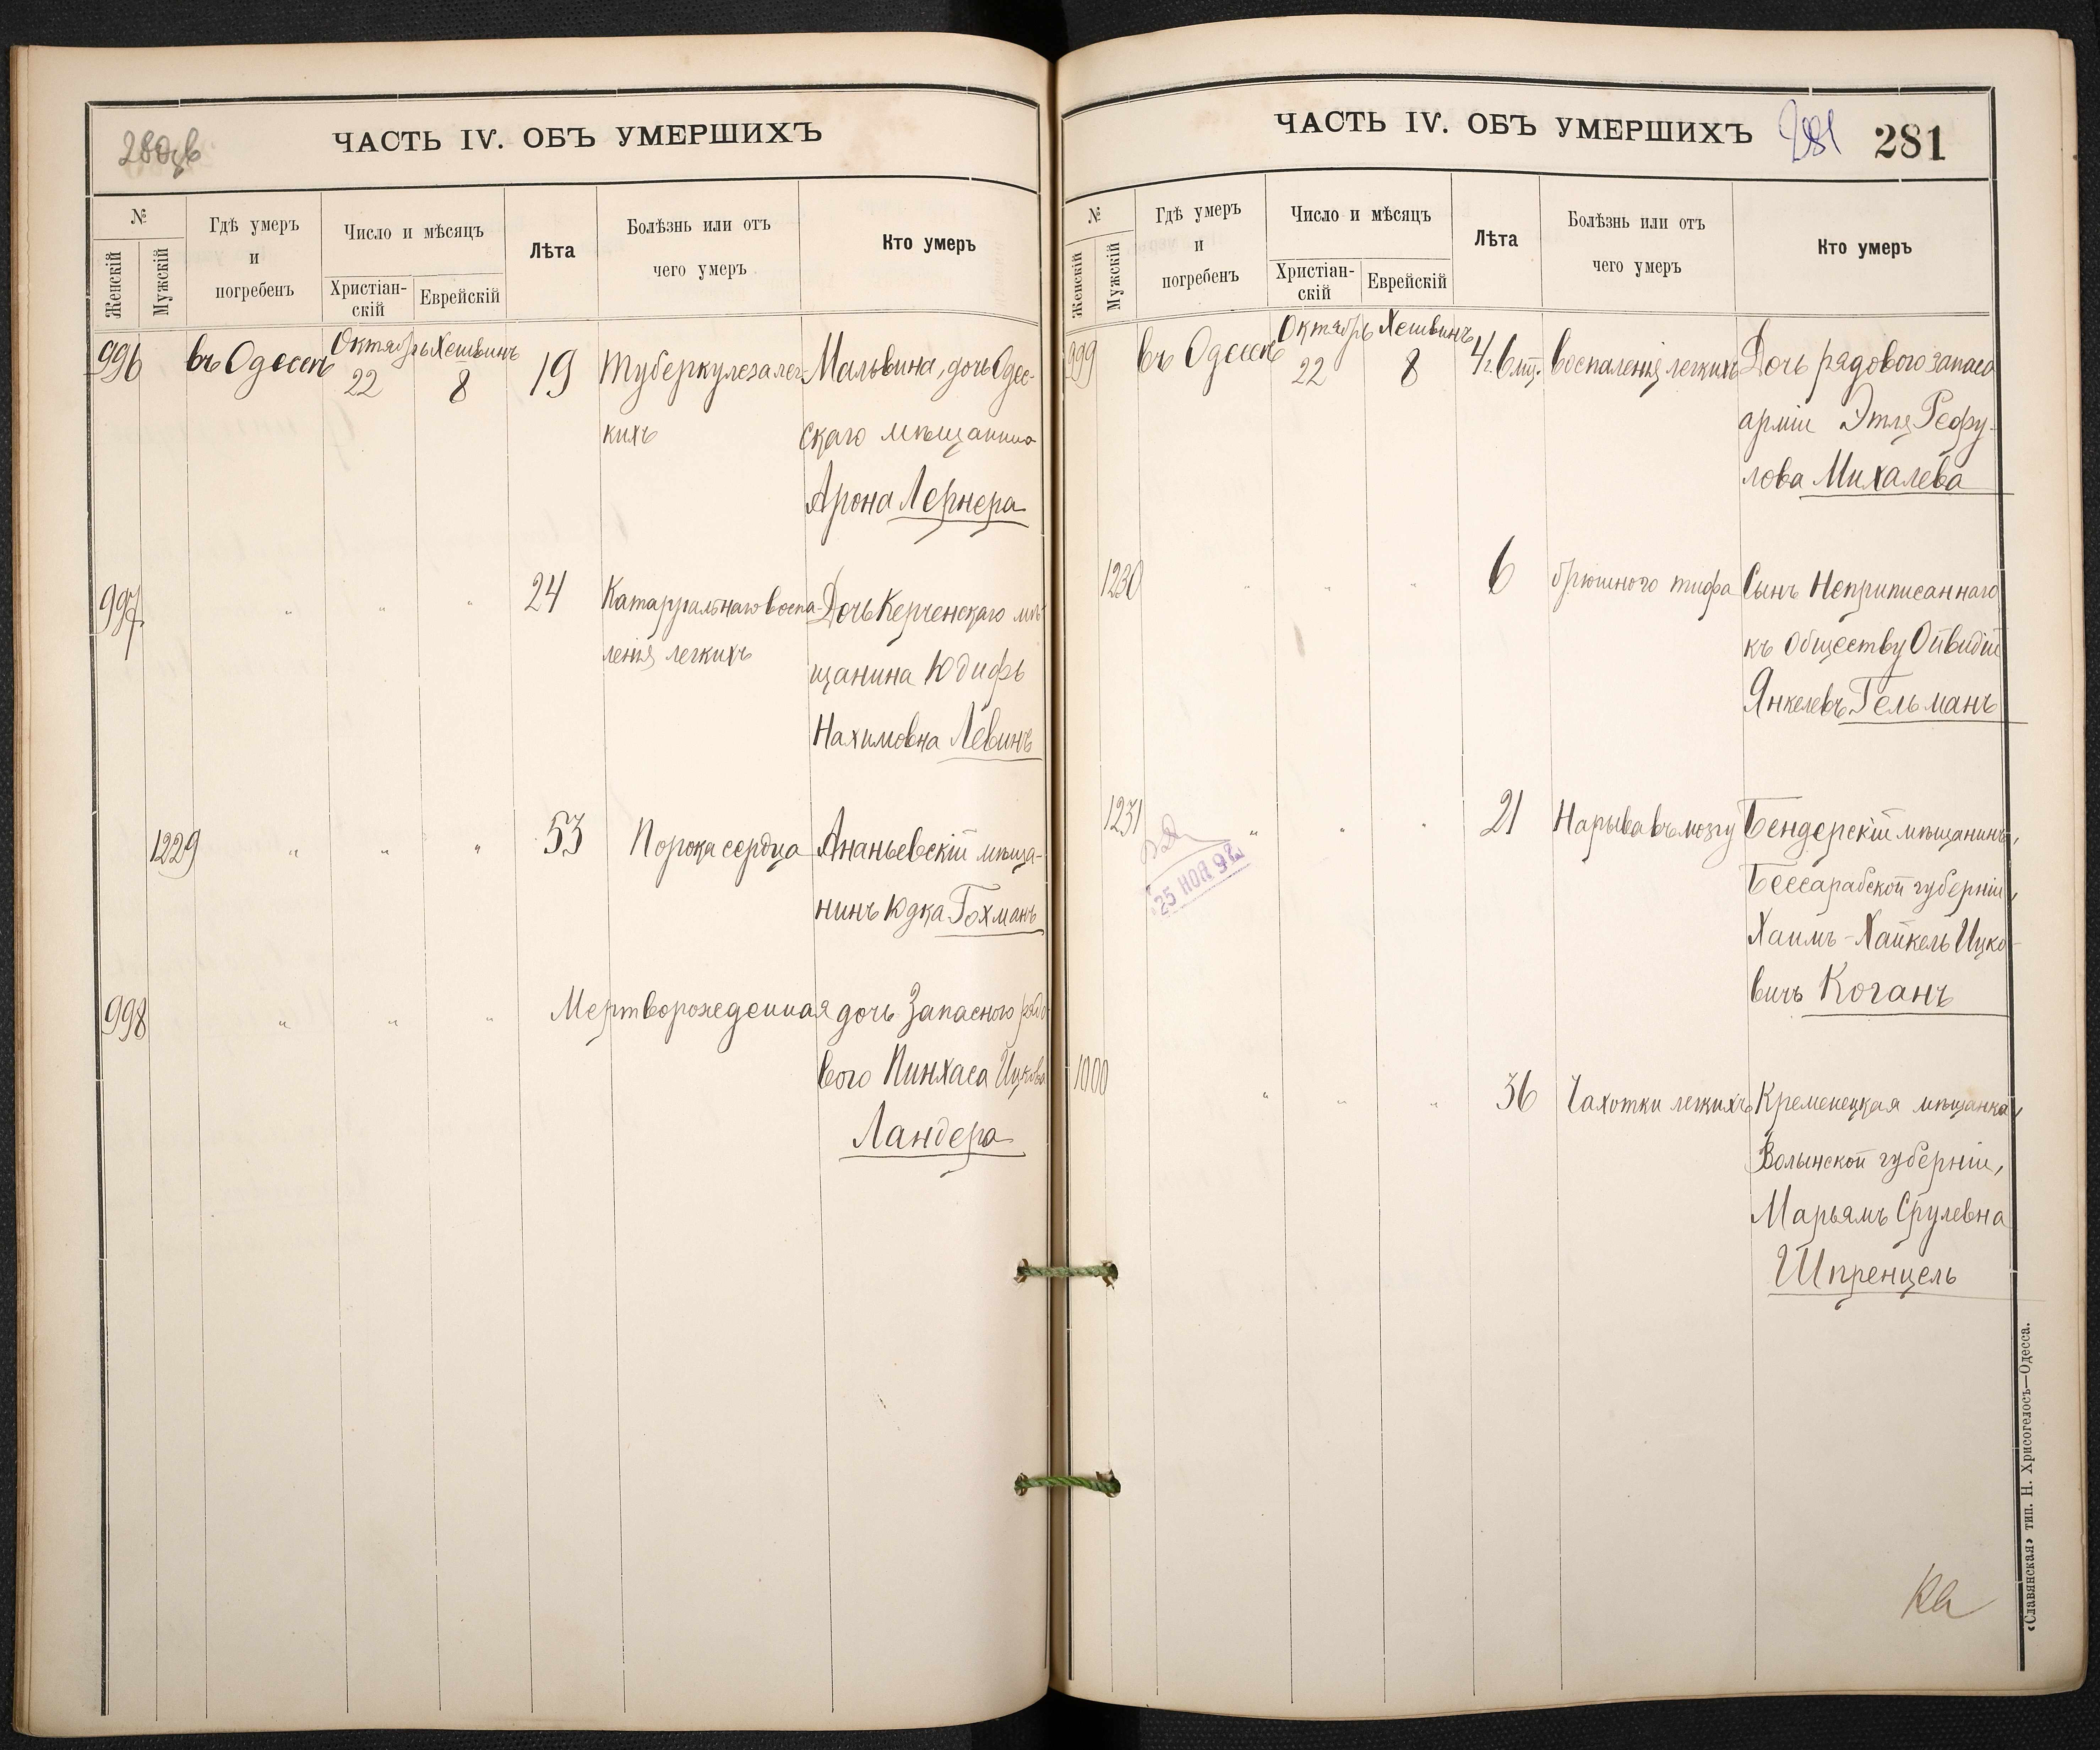 280 об
ЧАСТЬ IV. ОБЪ УМЕРШИХЪ
№
Женскій
Мужскій
Гдѣ умеръ
и
погребенъ
Число и мѣсяцъ
Христіан-
скій
Еврейскій
Лѣта
Болѣзнь или отъ
чего умеръ
Кто умеръ
996 въ Одессѣ Октябрь 22 Хешвинъ 8 19 Туберкулеза лег- Мальвина, дочь Одес-
кихъ скаго мѣщанина
Арона Лернера
997 " " " 24 Катарральнаго воспа- Дочь Керченскаго мѣ-
ленія легкихъ щанина Юдифь
Нахимовна Левинъ
1229 " " " 53 Порока сердца Ананьевскій мѣща-
нинъ Юдка Гохманъ
998 " " " Мертворожденная дочь Запасного рядо-
вого Пинхаса Ицкова
Ландера
ЧАСТЬ IV. ОБЪ УМЕРШИХЪ 281 281
№
Женскій
Мужскій
Гдѣ умеръ
и
погребенъ
Число и мѣсяцъ
Христіан-
скій
Еврейскій
Лѣта
Болѣзнь или отъ
чего умеръ
Кто умеръ
999 въ Одессѣ Октябрь 22 Хешвинъ 8 4 г. 6 мѣ. воспаленія легкихъ Дочь рядового запаса
арміи Этля Рефу-
лова Михалева
1230 " " " 6 брюшного тифа Сынъ Неприписаннаго
къ Обществу Ойвидій
Янкелевъ Гельманъ
1231 " " " 21 Нарыва въ мозгу Бендерскій мѣщанинъ,
Бессарабской губерніи,
Хаимъ-Хайкель Ицко-
вичъ Коганъ
25 НОЯ 92
1000 " " " 36 Чахотки легкихъ Кременецкая мѣщанка,
Волынской губерніи,
Марьямъ Срулевна
Шпренцель
«Славянская» тип. Н. Хрисогелосъ—Одесса.